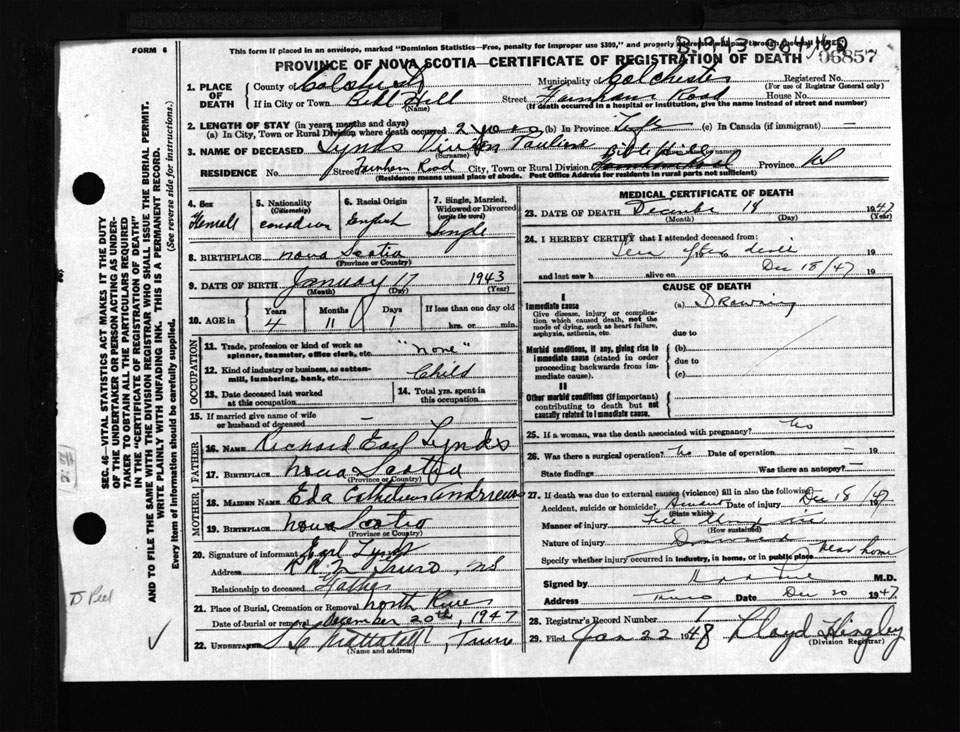 B.1943 
FORM 6
This form if placed in an envelope, marked "Dominion Statistics—Free, penalty for improper use $300," and properly addressed will pass through the mail FREE
06857
PROVINCE OF NOVA SCOTIA—CERTIFICATE OF REGISTRATION OF DEATH
1. PLACE OF DEATH County of Colchester Municipality of Colchester Registered No.
(For use of Registrar General only)
If in City or Town Bible Hill Street Farnham Road House No.
(Name) (If death occurred in a hospital or institution, give the name instead of street and number)
2. LENGTH OF STAY (in years, months and days)
(a) In City, Town or Rural Division where death occurred 2 years (b) In Province Life (c) In Canada (if immigrant) —
3. NAME OF DECEASED Lynds Vivian Pauline
(Surname)
RESIDENCE No. Street Farnham Road City, Town or Rural Division Bible Hill Province NS
(Residence means usual place of abode. Post Office Address for residents in rural parts not sufficient)
4. Sex Female
5. Nationality (Citizenship) Canadian
6. Racial Origin English
7. Single, Married, Widowed or Divorced (write the word) Single
8. BIRTHPLACE Nova Scotia
(Province or Country)
9. DATE OF BIRTH January 17 1943
(Month) (Day) (Year)
10. AGE in Years Months Days If less than one day old
4 11 1 hrs. or min.
OCCUPATION
11. Trade, profession or kind of work as spinner, teamster, office clerk, etc. "none"
12. Kind of industry or business, as cotton-mill, lumbering, bank, etc. Child
13. Date deceased last worked at this occupation
14. Total yrs. spent in this occupation
15. If married give name of wife or husband of deceased —
FATHER
16. Name Richard Earl Lynds
17. Birthplace Nova Scotia
(Province or Country)
MOTHER
18. Maiden Name Eda Andrews
19. Birthplace Nova Scotia
(Province or Country)
20. Signature of informant Earl Lynds
Address R R 2 Truro, NS
Relationship to deceased Father
21. Place of Burial, Cremation or Removal North River
Date of burial or removal December 20th, 1947
22. UNDERTAKER Mattatall, Truro
(Name and address)
MEDICAL CERTIFICATE OF DEATH
23. DATE OF DEATH December 18 1947
(Month) (Day) (Year)
24. I HEREBY CERTIFY that I attended deceased from:
Seen after death 19
and last saw h alive on Dec 18/47 19
CAUSE OF DEATH
I
Immediate cause
Give disease, injury or complication which caused death, not the mode of dying, such as heart failure, asphyxia, asthenia, etc.
(a) Drowning
due to
Morbid conditions, if any, giving rise to immediate cause (stated in order proceeding backwards from immediate cause).
(b)
due to
(c)
II
Other morbid conditions (if important) contributing to death but not causally related to immediate cause.
25. If a woman, was the death associated with pregnancy? No
26. Was there a surgical operation? No Date of operation — 19
State findings Was there an autopsy? —
27. If death was due to external causes (violence) fill in also the following:
Accident, suicide or homicide? Accident Date of injury Dec 18/47
(State which)
Manner of injury Fell through ice
(How sustained)
Nature of injury Drowned
Specify whether injury occurred in industry, in home, or in public place Near home
Signed by M.D.
Address Truro Date Dec 20 1947
28. Registrar's Record Number 1
29. Filed Jan 22 1948 Lloyd Hingley
(Division Registrar)
SEC. 46—VITAL STATISTICS ACT MAKES IT THE DUTY
OF THE UNDERTAKER OR PERSON ACTING AS UNDER-
TAKER TO OBTAIN ALL THE PARTICULARS REQUIRED
IN THE "CERTIFICATE OF REGISTRATION OF DEATH"
AND TO FILE THE SAME WITH THE DIVISION REGISTRAR WHO SHALL ISSUE THE BURIAL PERMIT.
WRITE PLAINLY WITH UNFADING INK. THIS IS A PERMANENT RECORD.
Every item of information should be carefully supplied. (See reverse side for instructions.)